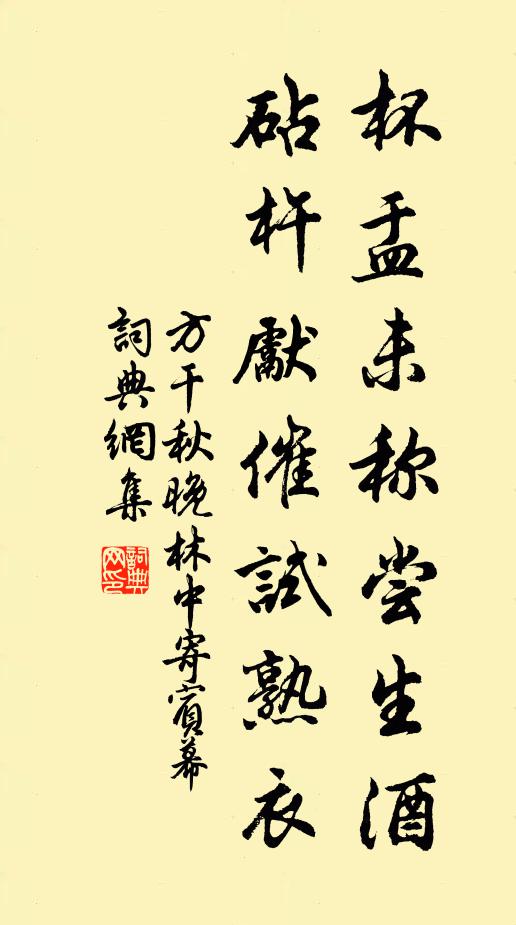 杯盂未称尝生酒
砧杵獻催試熟衣
方干秋晚林中寄賓幕
詞典網集
詞典网印